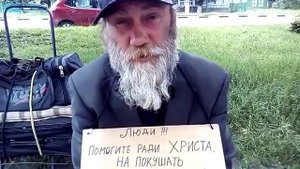 Люди !!!
Помогите ради Христа,
на покушать